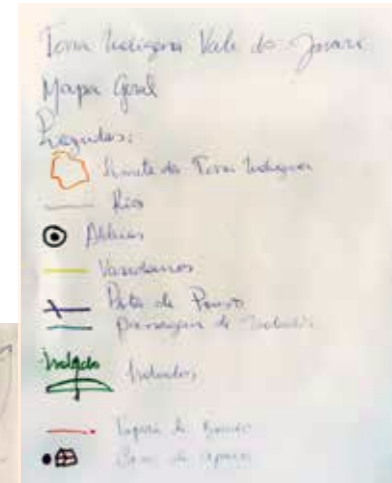 Terra Indígena Vale do Javari
Mapa Geral
Legendas:
Limite da Terra Indígena
Rio
Aldeias
Varadouros
Pista de Pouso
passagem de Isolados
Isolados
Isolados